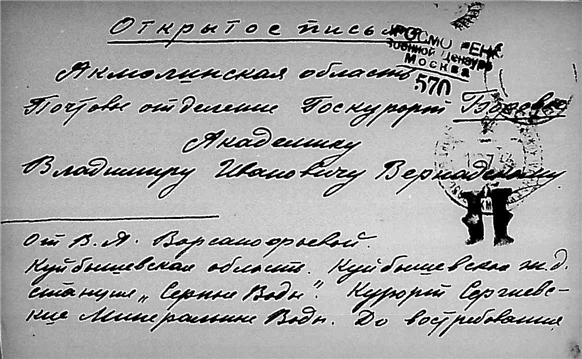 Открытое письмо
ПРОСМОТРЕНО
Военной Цензурой
Москва
570
Акмолинская область
Почтовое отделение Госкурорт Боровое
Академику
Владимиру Ивановичу Вернадскому
От В. А. Варсанофьевой.
Куйбышевская область. Куйбышевская ж.д.
станция „Серные Воды". Курорт Сергиев-
ские Минеральные Воды. До востребования